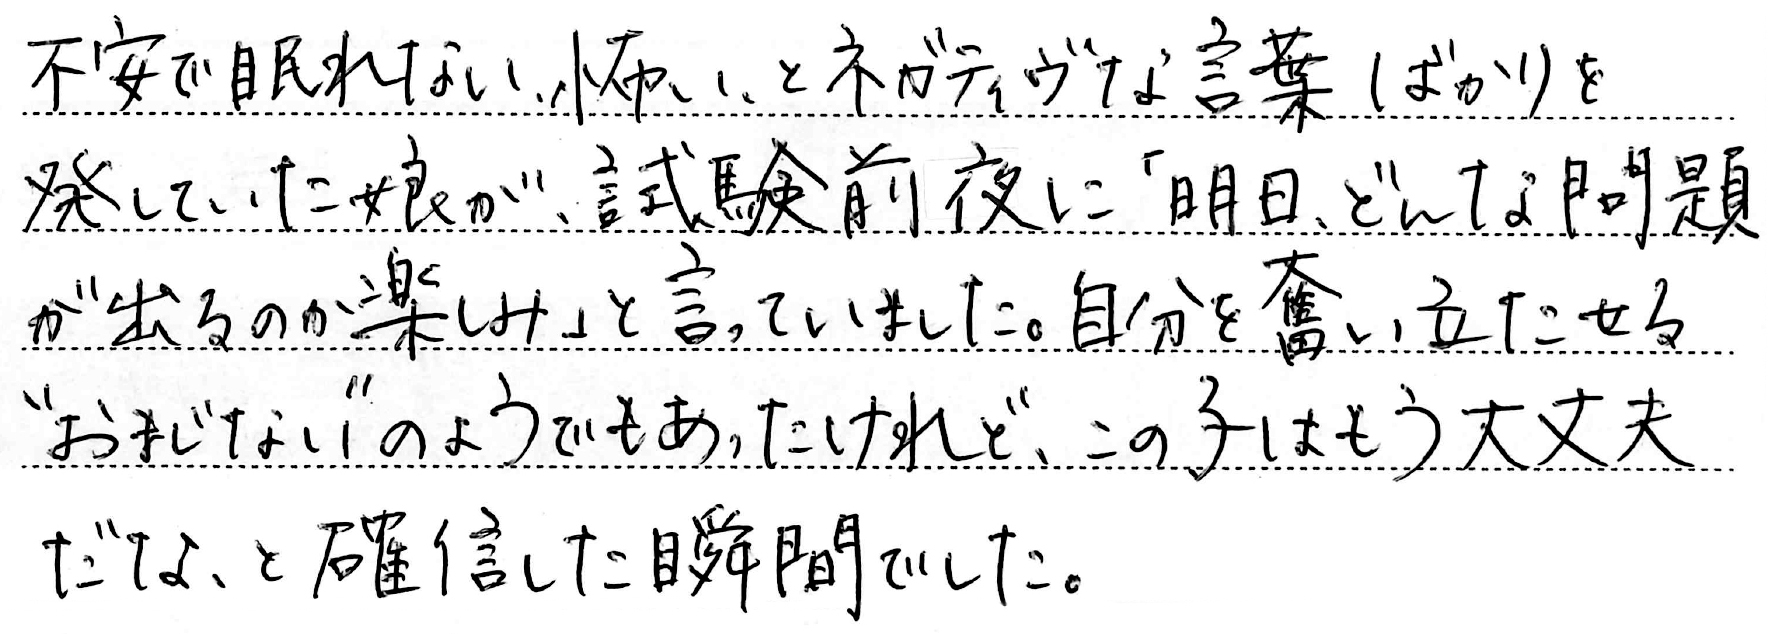 不安で眠れない、怖い、とネガティヴな言葉ばかりを
発していた娘が、試験前夜に「明日、どんな問題
が出るのか楽しみ」と言っていました。自分を奮い立たせる
"おまじない"のようでもあったけれど、この子はもう大丈夫
だな、と確信した瞬間でした。